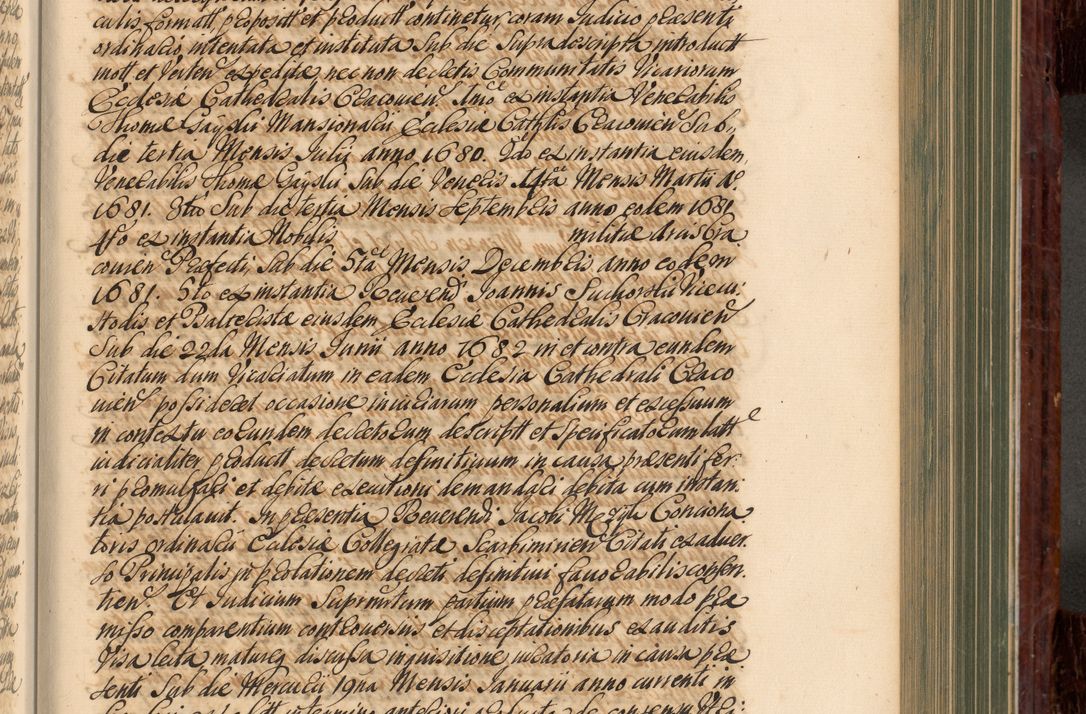 calis formatt propositt et productt continetur coram Iudicio praesenti
ordinario intentata et instituta Sub die Supradescripta introductt
mott et Verten expedita, nec non decretis Communitatis Vicariorum
Ecclesiae Cathedralis Cracovien Imo ex instantia Venerabilis
Thomae Gayslii Mansionarii Ecclesiae Cathlis Cracovien Sab,
die tertia Mensis Julii anno 1680. 2do ex instantia eiusdem,
Venerabilis Thomae Gayslii Sub die Veneris 14ta Mensis Martii Ao
1681. 3tio Sub die tertia Mensis Septembris anno eodem 1681
4to ex instantia Nobilis militiae Arcis Cra
covien Praefecti, Sub die 5ta Mensis Decembris anno eodem
1681. 5to ex instantia Reverend Joannis Suchorski Vicecu,
stodis et Psalteristae eiusdem Ecclesiae Cathedralis Cracovien
Sub die 22da Mensis Junii anno 1682 in et contra eundem
Citatum dum Vicariatum in eadem Ecclesia Cathedrali Craco
vien possideret occasione iniuriarum personalium et excessuum
in contextu eorundem decretorum descriptt et specificatorum latt
iudicialiter productt decretum definitivum in causa praesenti fer,
ri promulgari et debita executioni demandari debita cum instan,
tia postulavit. In praesentia Reverendi Jacobi Mzyk Conciona
toris ordinarii Ecclesiae Collegiatae Scarbimirien Citati ex adver,
so Principalis in prolationem decreti definitivi favorabilis consen,
tien. Et Iudicium Supremum partium praefatarum modo prae
misso comparentium controversiis et disceptationibus exauditis
Visa lecta matureq discussa inquisitione iuratoria in causa prae
senti Sub die Mercurii 19na Mensis Januarii anno currenti in